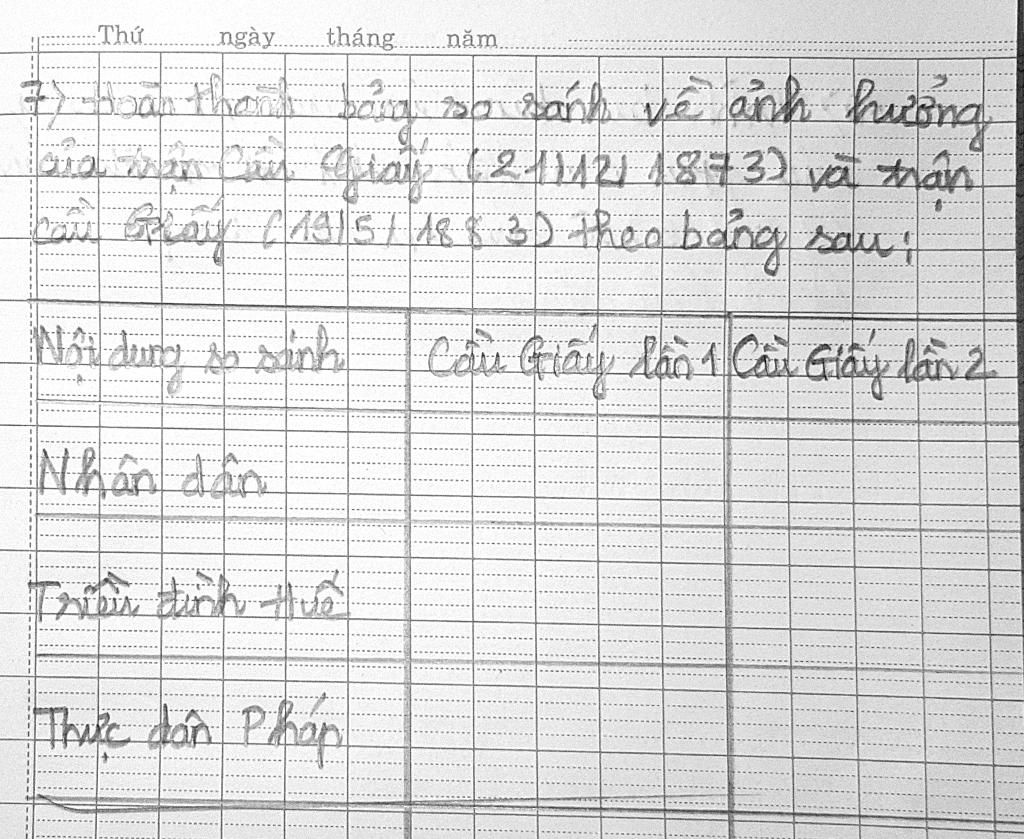 Thứ ngày tháng năm
7) Hoàn thành bảng so sánh về ảnh hưởng
của trận Cầu Giấy (21/12/1873) và trận
cầu Giấy (19/5/1883) theo bảng sau:
Nội dung so sánh Cầu Giấy lần 1 Cầu Giấy lần 2
Nhân dân
Triều đình Huế
Thực dân Pháp